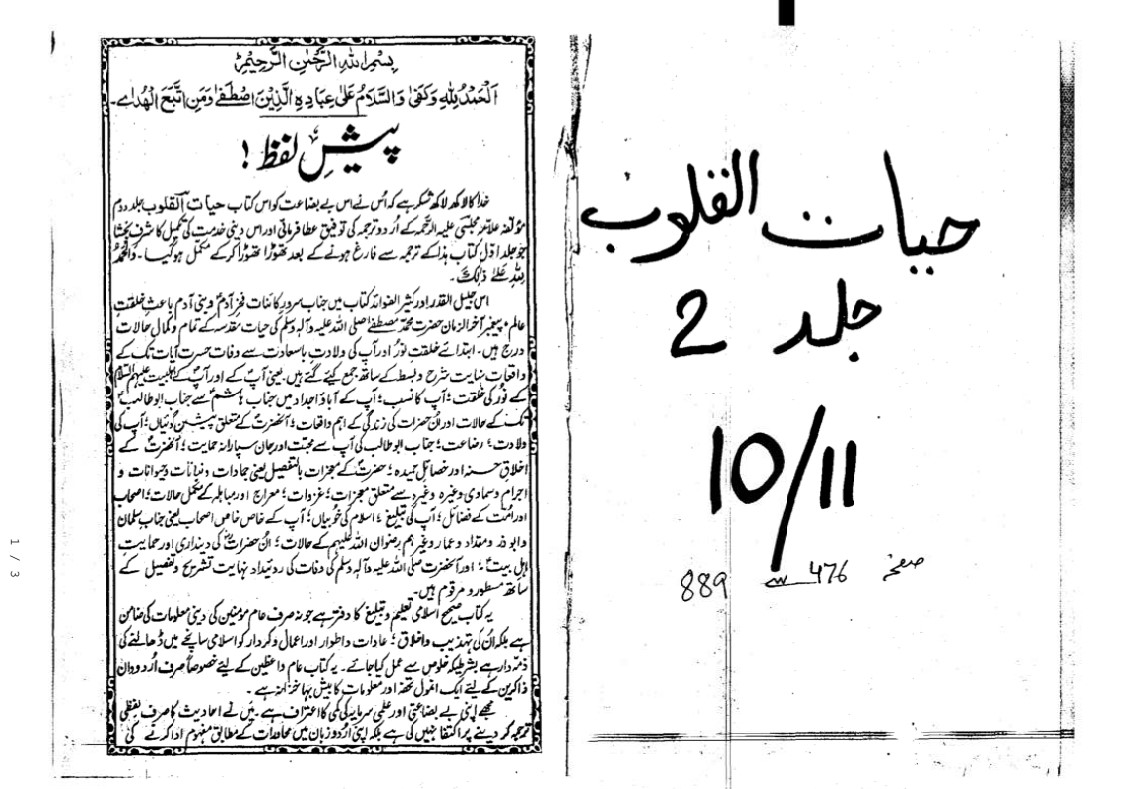 حیات القلوب
جلد 2
10/11
صفحہ 476 سے 889
بسم اللہ الرحمٰن الرحیم
الحمد للہ وکفیٰ والسلام علیٰ عبادہ الذین اصطفےٰ ومن اتبع الھداے۔
پیشِ لفظ !
خدا کا لاکھ لاکھ شکر ہے کہ اُس نے اس بے بضاعت کو اس کتاب حیات القلوب جلد دوم
مؤلفہ علامہ مجلسی علیہ الرحمہ کے اُردو ترجمہ کی توفیق عطا فرمائی اور اس دینی خدمت کی تکمیل کا شرف بخشا
جو جلد اوّل کتاب ہذا کے ترجمہ سے فارغ ہونے کے بعد تھوڑا تھوڑا کرکے مکمل ہوگیا۔ والحمد
للہ علےٰ ذٰلک۔
اس جلیل القدر اور کثیر الفوائد کتاب میں جناب سرورِ کائنات فخرِ آدمؑ و بنی آدم باعثِ خلقتِ
عالم، پیغمبر آخر الزمان حضرت محمد مصطفےٰ صلی اللہ علیہ وآلہ وسلم کی حیات مقدسہ کے تمام و کمال حالات
درج ہیں۔ ابتدائے خلقتِ نُور اور آپ کی ولادتِ باسعادت سے وفات حسرت آیات تک کے
واقعات نہایت شرح و بسط کے ساتھ جمع کیئے گئے ہیں۔ یعنی آپؐ کے اور آپؐ کے اہلبیت علیہم السلام
کے نُور کی خلقت؛ آپ کا نسب؛ آپ کے آباؤ اجداد میں جناب ہاشمؑ سے جناب ابوطالبؑ
تک کے حالات اور اُن حضرات کی زندگی کے اہم واقعات؛ آنحضرتؐ کے متعلق پیشین گوئیاں؛ آپ کی
ولادت؛ رضاعت؛ جناب ابوطالب کی آپ سے محبت اور جان سپارانہ حمایت؛ آنحضرتؐ کے
اخلاقِ حسنہ اور خصائلِ حمیدہ؛ حضرتؐ کے معجزات بالتفصیل یعنی جمادات و نباتات و حیوانات و
اجرام و سماوی وغیرہ وغیرہ سے متعلق معجزات؛ غزوات؛ معراج اور مباہلہ کے مکمل حالات؛ اصحاب
اور اُمّت کے فضائل؛ آپ کی تبلیغ؛ اسلام کی خُوبیاں؛ آپ کے خاص خاص اصحاب یعنی جناب سلمان
و ابوذر و مقداد و عمار وغیر ہم رضوان اللہ علیہم کے حالات؛ اُن حضرات کی دینداری اور حمایتِ
اہلِ بیتؑ؛ اور آنحضرت صلی اللہ علیہ وآلہ وسلم کی وفات کی روئیداد نہایت تشریح و تفصیل کے
ساتھ مسطور و مرقوم ہیں۔
یہ کتاب صحیح اسلامی تعلیم و تبلیغ کا دفتر ہے جو نہ صرف عام مومنین کی دینی معلومات کی ضامن
ہے بلکہ اُن کی تہذیب و اخلاق؛ عادات و اطوار اور اعمال و کردار کو اسلامی سانچے میں ڈھالنے کی
ذمّہ دار ہے بشرطیکہ خلوص سے عمل کیا جائے۔ یہ کتاب عام واعظین کے لئے خصوصاً صرف اُردو دان
ذاکرین کے لئے ایک انمول تحفہ اور معلومات کا بیش بہا خزانہ ہے۔
مجھے اپنی بے بضاعتی اور علمی سرمایہ کی کمی کا اعتراف ہے۔ میں نے احادیث کا صرف لفظی
ترجمہ کر دینے پر اکتفا نہیں کی ہے بلکہ اپنی اُردو زبان میں محاورات کے مطابق مفہوم ادا کرنے کی
1 / 3